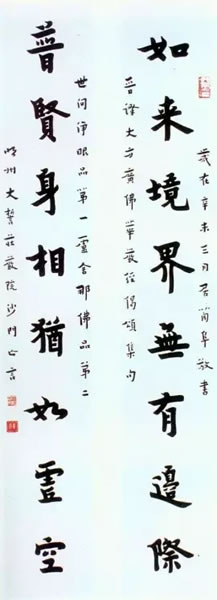 歲在辛未三月居蘭阜敬書
如来境界無有邊際
晋譯大方廣佛華嚴經偈頌集句
世间淨眼品第一盧舍那佛品第二
普賢身相猶如虛空
明州大誓莊嚴院沙門亡言